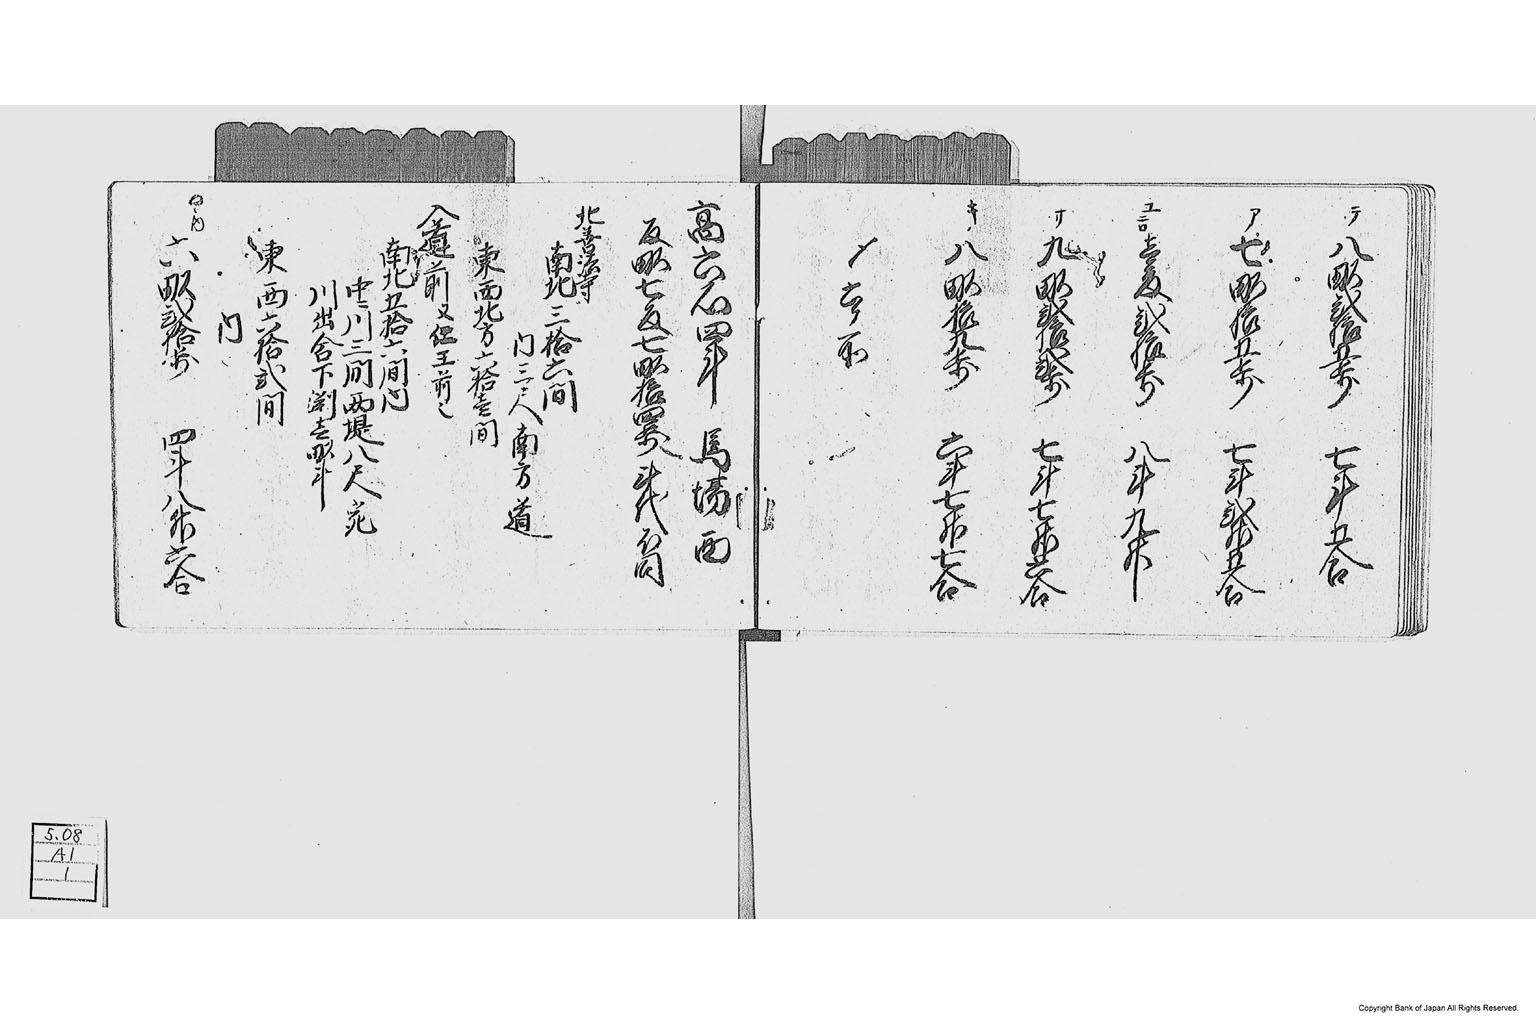 テ 八畝弐拾五歩 七斗五合
ア 七畝拾五歩 七斗弐升五合
ユ 壱反弐拾歩 八斗九升
サ 九畝弐拾弐歩 七斗七升六合
キ 八畝拾九歩 六斗七升七合
〆
高六石四斗 馬場西
反畝七反七畝拾四歩 斗代
北善法寺
南北三拾六間
内三尺 南方道
東西北方六拾壱間
入道前又仁王前之
南北五拾六間内
中ニ川三間両堤八尺
川出合下渕壱畝斗
東西六拾弐間
内
六畝弐拾歩 四斗八升六合
5.08
A1
1
Copyright Bank of Japan All Rights Reserved.